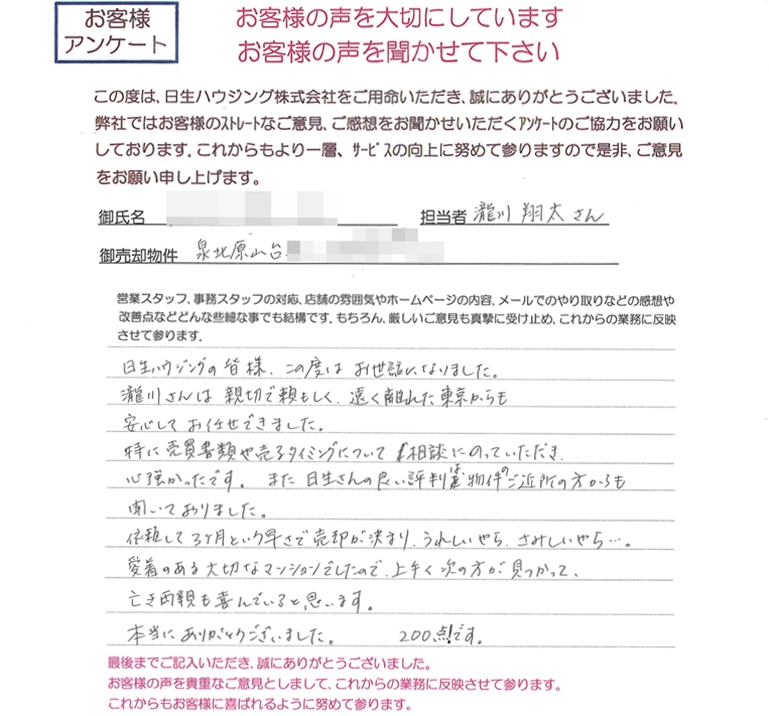 お客様
アンケート
お客様の声を大切にしています
お客様の声を聞かせて下さい
この度は、日生ハウジング株式会社をご用命いただき、誠にありがとうございました。
弊社ではお客様のストレートなご意見、ご感想をお聞かせいただくアンケートのご協力をお願い
しております。これからもより一層、サービスの向上に努めて参りますので是非、ご意見
をお願い申し上げます。
御氏名 担当者 瀧川 翔太さん
御売却物件 泉北原山台
営業スタッフ、事務スタッフの対応、店舗の雰囲気やホームページの内容、メールでのやり取りなどの感想や
改善点などどんな些細な事でも結構です。もちろん、厳しいご意見も真摯に受け止め、これからの業務に反映
させて参ります。
日生ハウジングの皆様、この度はお世話になりました。
瀧川さんは親切で頼もしく、遠く離れた東京からも
安心してお任せできました。
特に売買書類や売るタイミングについて相談にのっていただき、
心強かったです。また日生さんの良い評判は物件のご近所の方からも
聞いておりました。
依頼して3ヶ月という早さで売却が決まり、うれしいやら、さみしいやら…。
愛着のある大切なマンションでしたので、上手く次の方が見つかって、
亡き両親も喜んでいると思います。
本当にありがとうございました。 200点です。
最後までご記入いただき、誠にありがとうございました。
お客様の声を貴重なご意見としまして、これからの業務に反映させて参ります。
これからもお客様に喜ばれるように努めて参ります。